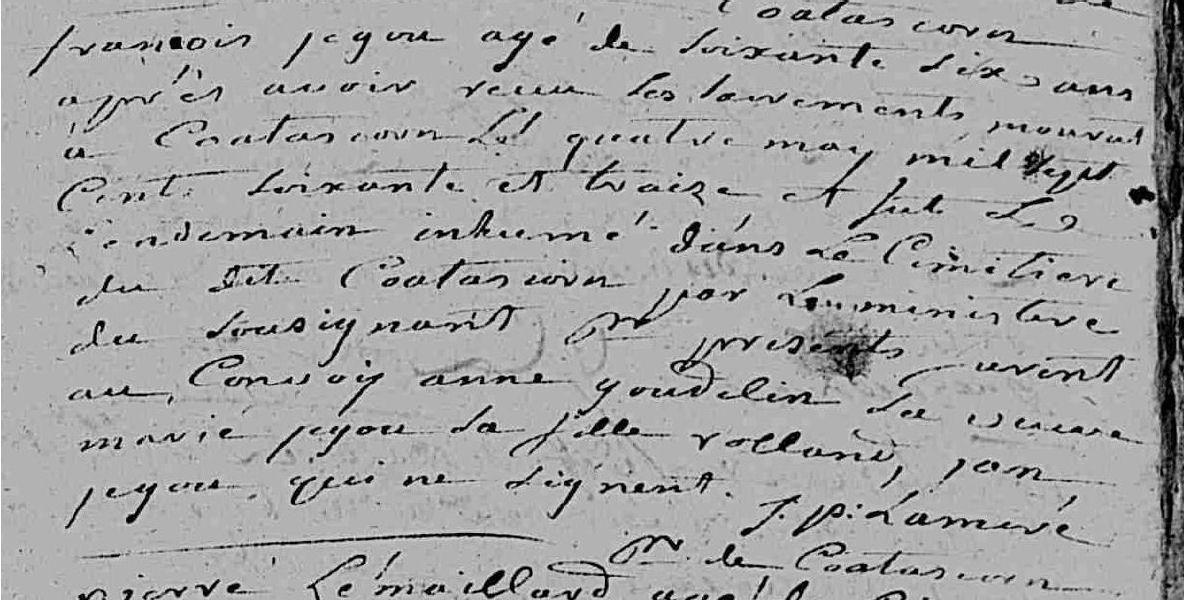 Coatascorn
françois jegou agé de soixante six ans
aprés avoir recu les sacrements mourut
à Coatascorn Le quatre may mil sept
Cent soixante et traize et fut Le
Lendemain inhumé dans Le Cimetiere
du dit Coatascorn par Le ministere
du sousignant pr presents furent
au Convoy anne goudelin sa veuve
marie jegou sa fille rolland, jan
jegou qui ne signent.
J. p: Lameré
pr de Coatascorn
pierre Lémaillard agé